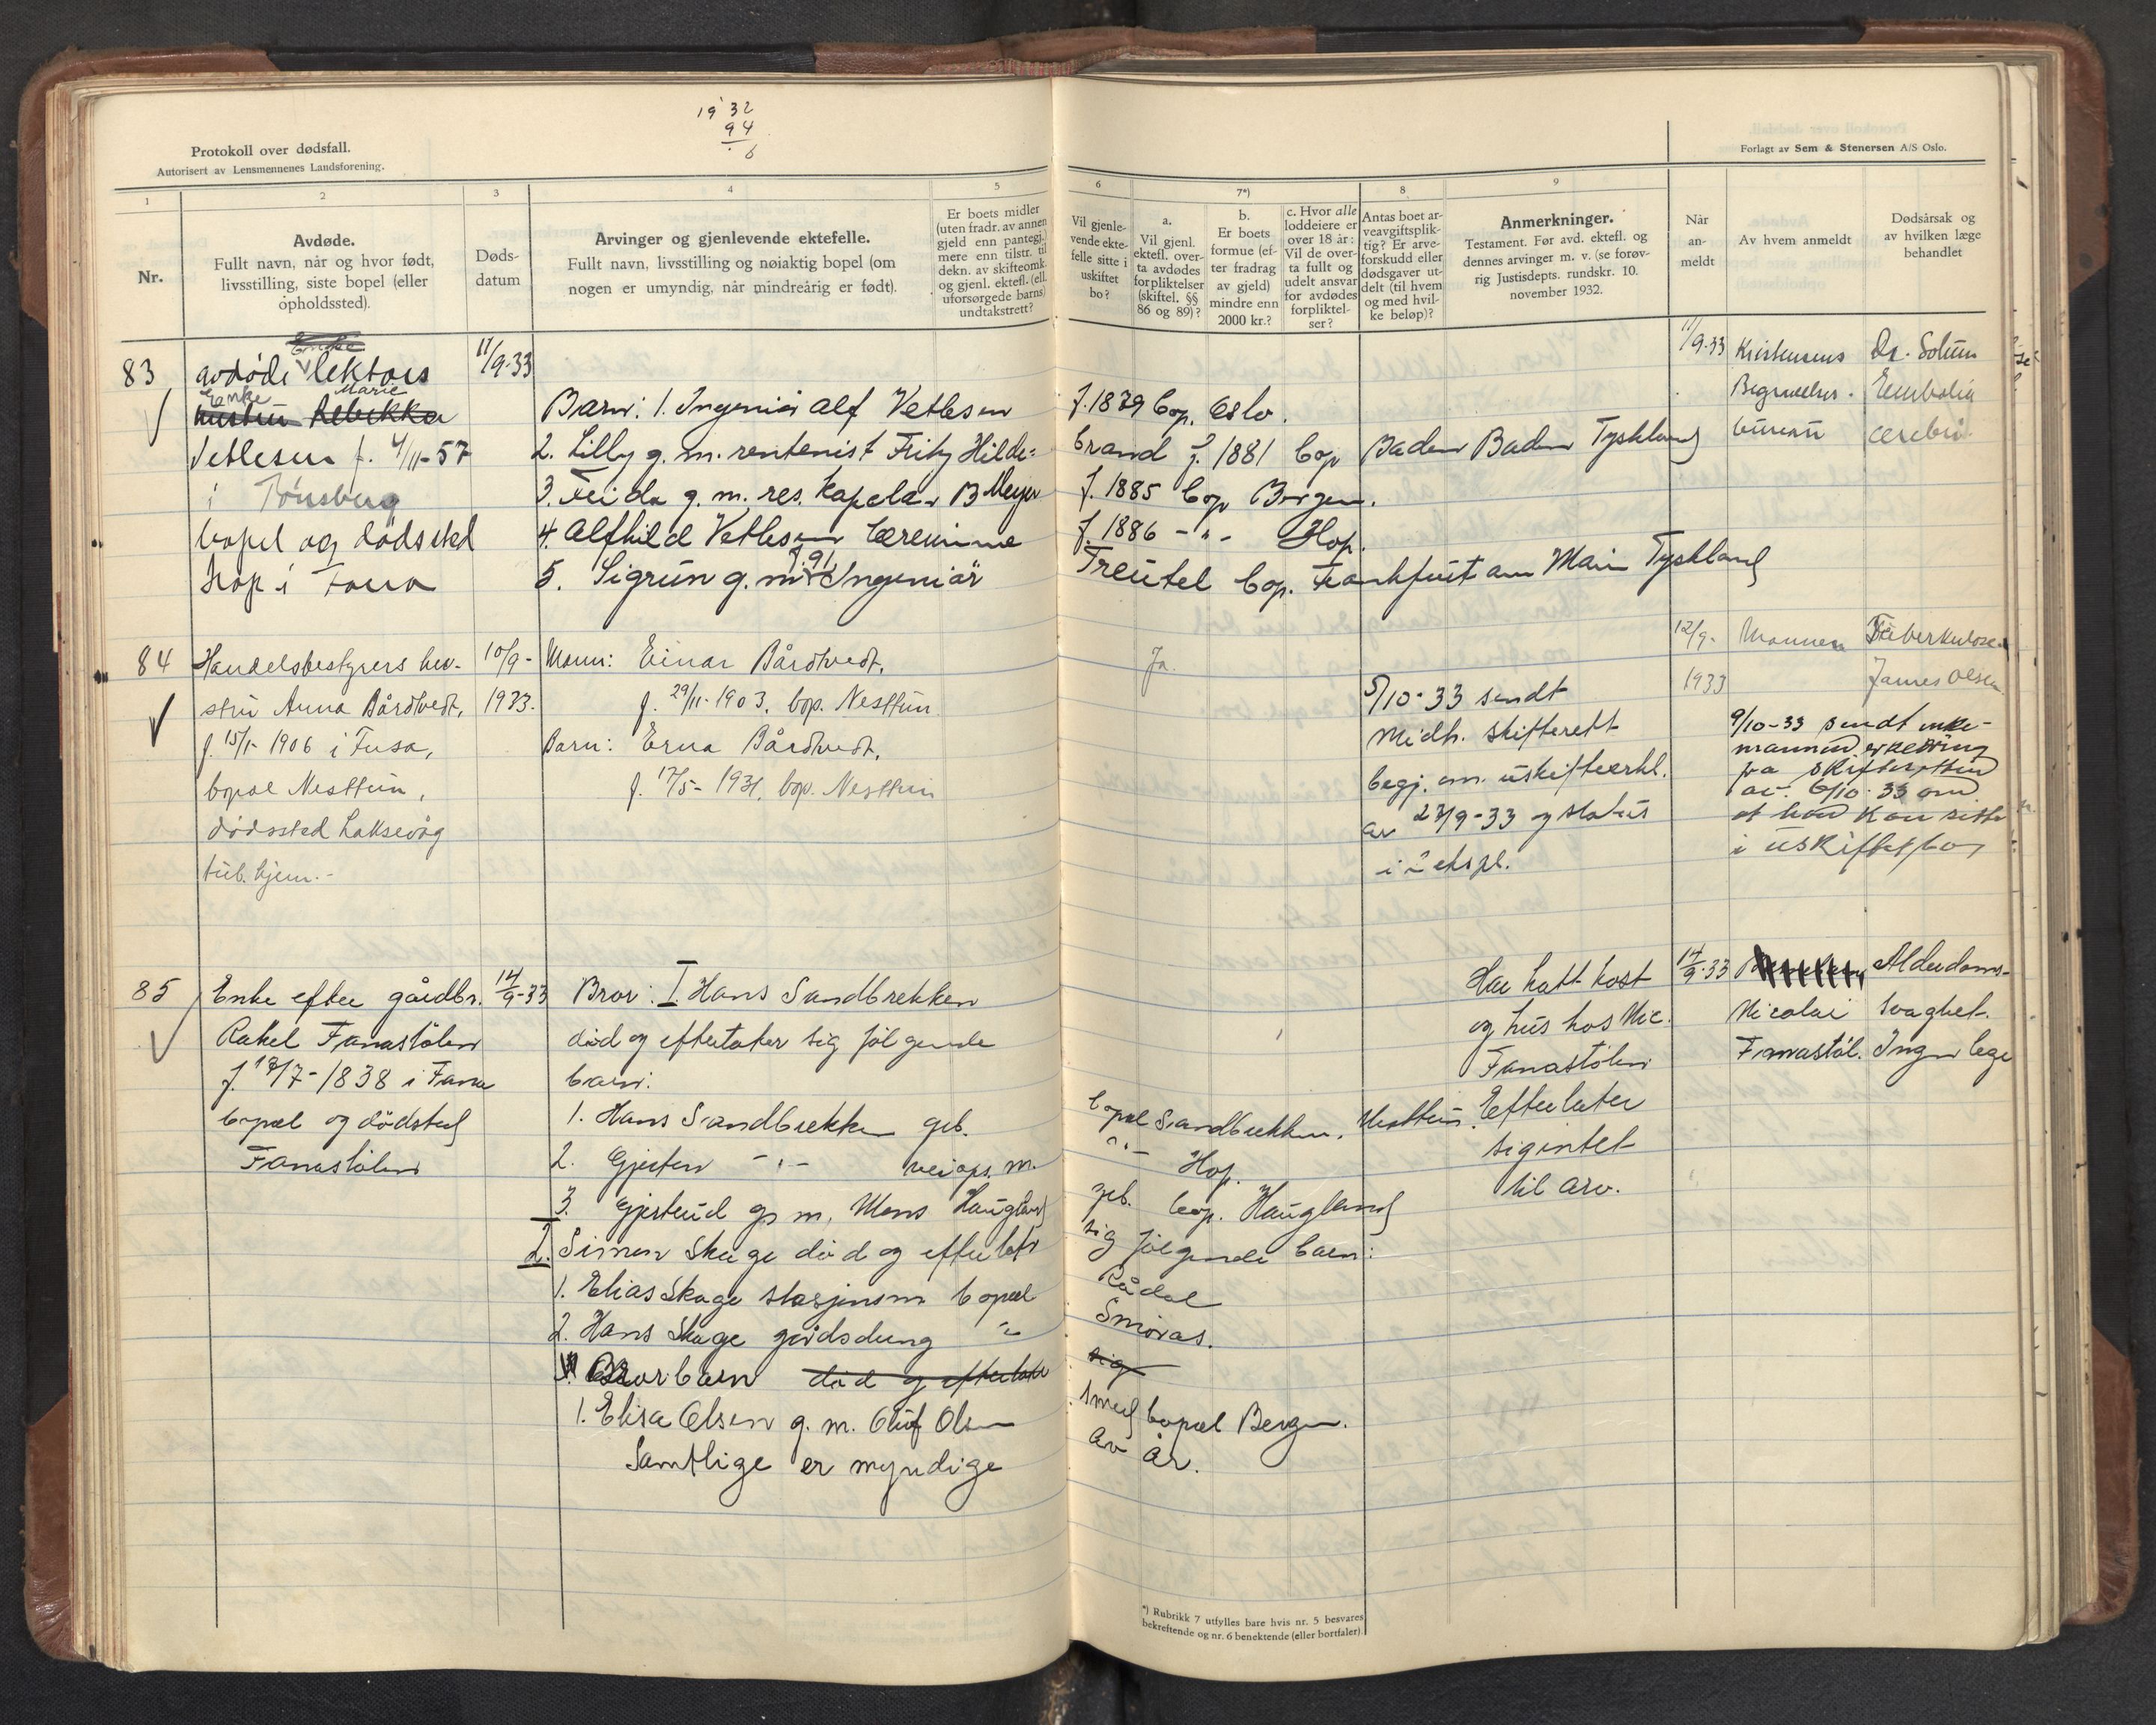 19 32
94
6
Protokoll over dødsfall.
Autorisert av Lensmennenes Landsforening.
Forlagt av Sem & Stenersen A/S Oslo.
1
2
3
4
5
6
7*)
8
9
Nr.
Avdøde.
Fullt navn, når og hvor født,
livsstilling, siste bopel (eller
opholdssted).
Døds-
datum
Arvinger og gjenlevende ektefelle.
Fullt navn, livsstilling og nøiaktig bopel (om
nogen er umyndig, når mindreårig er født).
Er boets midler
(uten fradr. av annen
gjeld enn pantegj.)
mere enn tilstr. til
dekn. av skifteomk.
og gjenl. ektef. (ell.
uforsørgede barns)
undtakstrett?
Vil gjenle-
vende ekte-
felle sitte i
uskiftet
bo?
a.
Vil gjenl.
ektefl. over-
ta avdødes
forpliktelser
(skiftel. §§
86 og 89)?
b.
Er boets
formue (ef-
ter fradrag
av gjeld)
mindre enn
2000 kr.?
c. Hvor alle
loddeiere er
over 18 år:
Vil de over-
ta fullt og
udelt ansvar
for avdødes
forpliktel-
ser?
Antas boet ar-
veavgiftsplik-
tig? Er arve-
forskudd eller
dødsgaver ut-
delt (til hvem
og med hvil-
ke beløp)?
Anmerkninger.
Testament. Før avd. ektefl. og
dennes arvinger m. v. (se forøv-
rig Justisdepts. rundskr. 10.
november 1932.
Når
an-
meldt
Av hvem anmeldt
Dødsårsak og
av hvilken læge
behandlet
83
Enke
avdøde lektors
Enke Marie
hustru Rebekka
Vetlesen f. 4/11-57
i Tønsberg
bopel og dødssted
Hop i Fana
11/9-33
Barn: 1. Ingeniør Alf Vetlesen f. 1879 bop. Oslo.
2. Lilly g. m. rentenist Fritz Hilde=brand f. 1881 bop Baden Baden Tyskland
3. Frida g. m. res. kapelan B Meyer f. 1885 bop Bergen.
4. Alfhild Vetlesen lærerinne f. 1886 - " - Hop.
f. 91
5. Sigrun g. m. Ingeniør Treutel bop. Frankfurt am Main Tyskland
11/9-33
Kristensens
Begravelses-
bureau
Dr. Solum
Embolia
cerebri.
84
Handelsbestyrers hu-
stru Anna Bårdtvedt,
f. 15/1-1906 i Fusa,
bopæl Nesttun,
dødssted Laksevåg
tub. hjem.-
10/9-
1933.
Mann: Einar Bårdtvedt,
f. 29/11-1903, bop. Nesttun.
Barn: Erna Bårdtvedt,
f. 17/5-1931, bop. Nesttun
Ja.
5/10-33 sendt
Midh. skifterett
begj. om uskifteerkl.
av 27/9-33 og status
i 2 ekspl.
12/9-
1933
Mannen
Tuberkulose
James Olsen.
9/10-33 sendt enke-
mannen erklæring
fra skifteretten
av 6/10-33 om
at han kan sitte
i uskiftet bo
85
Enke efter gårdbr.
Rakel Fanastølen
f. 18/7-1838 i Fana
bopæl og dødsted
Fanastølen
14/9-33
Bror: I. Hans Sandbrekken
død og efterlater sig følgende
barn:
1. Hans Sandbrekken gb. bopæl Sandbrekken, Nesttun.
2. Gjerten - " - veiops. m. " - Hop.
3. Gjertrud g. m. Mons Haugland gb. bop. Haugland
2. Simon Skage død og efterlater sig følgende barn:
1. Elias Skage stasjonsm bopæl Rådal
2. Hans Skage gårdsdreng " Smørås.
Brorbarn død og efterlater sig
1. Elisa Olsen g. m. Oluf Olsen smed bopæl Bergen.
Samtlige er myndige av år.
Har hatt kost
og hus hos Nic.
Fanastølen
Efterlater
sig intet
til arv.
14/9-33
Nicolai
Fanastøl.
Alderdoms-
svaghet.
Ingen lege
*) Rubrikk 7 utfylles bare hvis nr. 5 besvares
bekreftende og nr. 6 benektende (eller bortfaler).